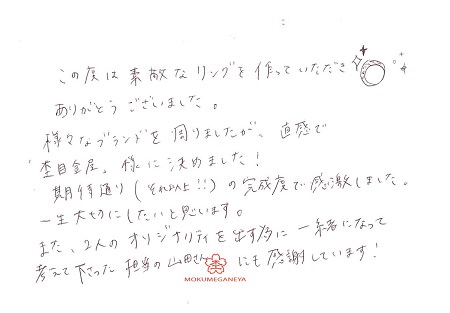 この度は素敵なリングを作っていただき
ありがとうございました。
様々なブランドを周りましたが、直感で
杢目金屋。様に決めました!
期待通り(それ以上!!)の完成度で感激しました。
一生大切にしたいと思います。
また、2人のオリジナリティを出す為に一緒になって
考えて下さった担当の山田さんにも感謝しています!
MOKUMEGANEYA